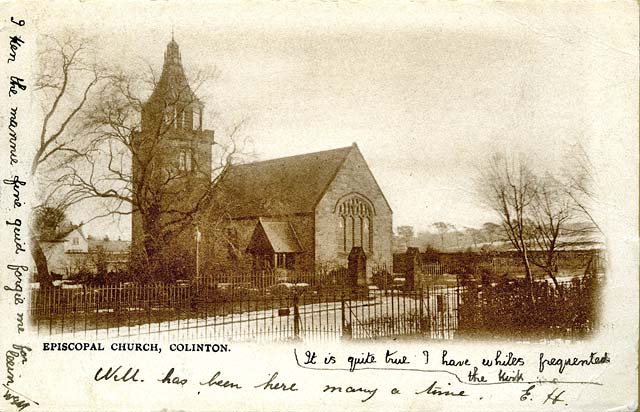 I ken the mannie fine guid forgie me for
leein, Will
EPISCOPAL CHURCH, COLINTON.
It is quite true I have whiles frequented
the kirk
Well. has been here many a time. E. H.